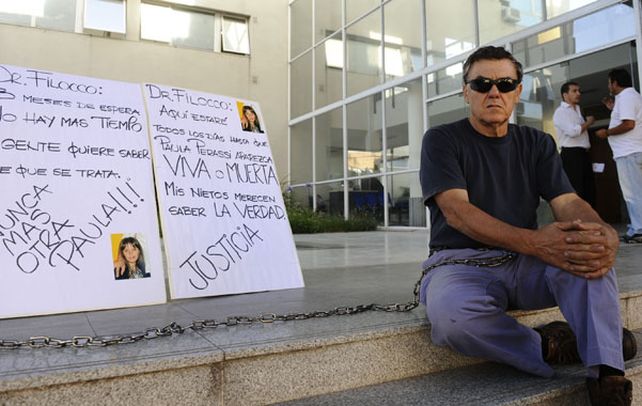 DR. FILOCCO:
MESES DE ESPERA
NO HAY MAS TIEMPO
GENTE QUIERE SABER
E QUE SE TRATA.
NUNCA
MAS
OTRA
PAULA!!!
DR. FILOCCO:
AQUI ESTARÉ
TODOS LOS DÍAS HASTA QUE
PAULA PERASSI APAREZCA
VIVA O MUERTA
MIS NIETOS MERECEN
SABER LA VERDAD.
JUSTICIA